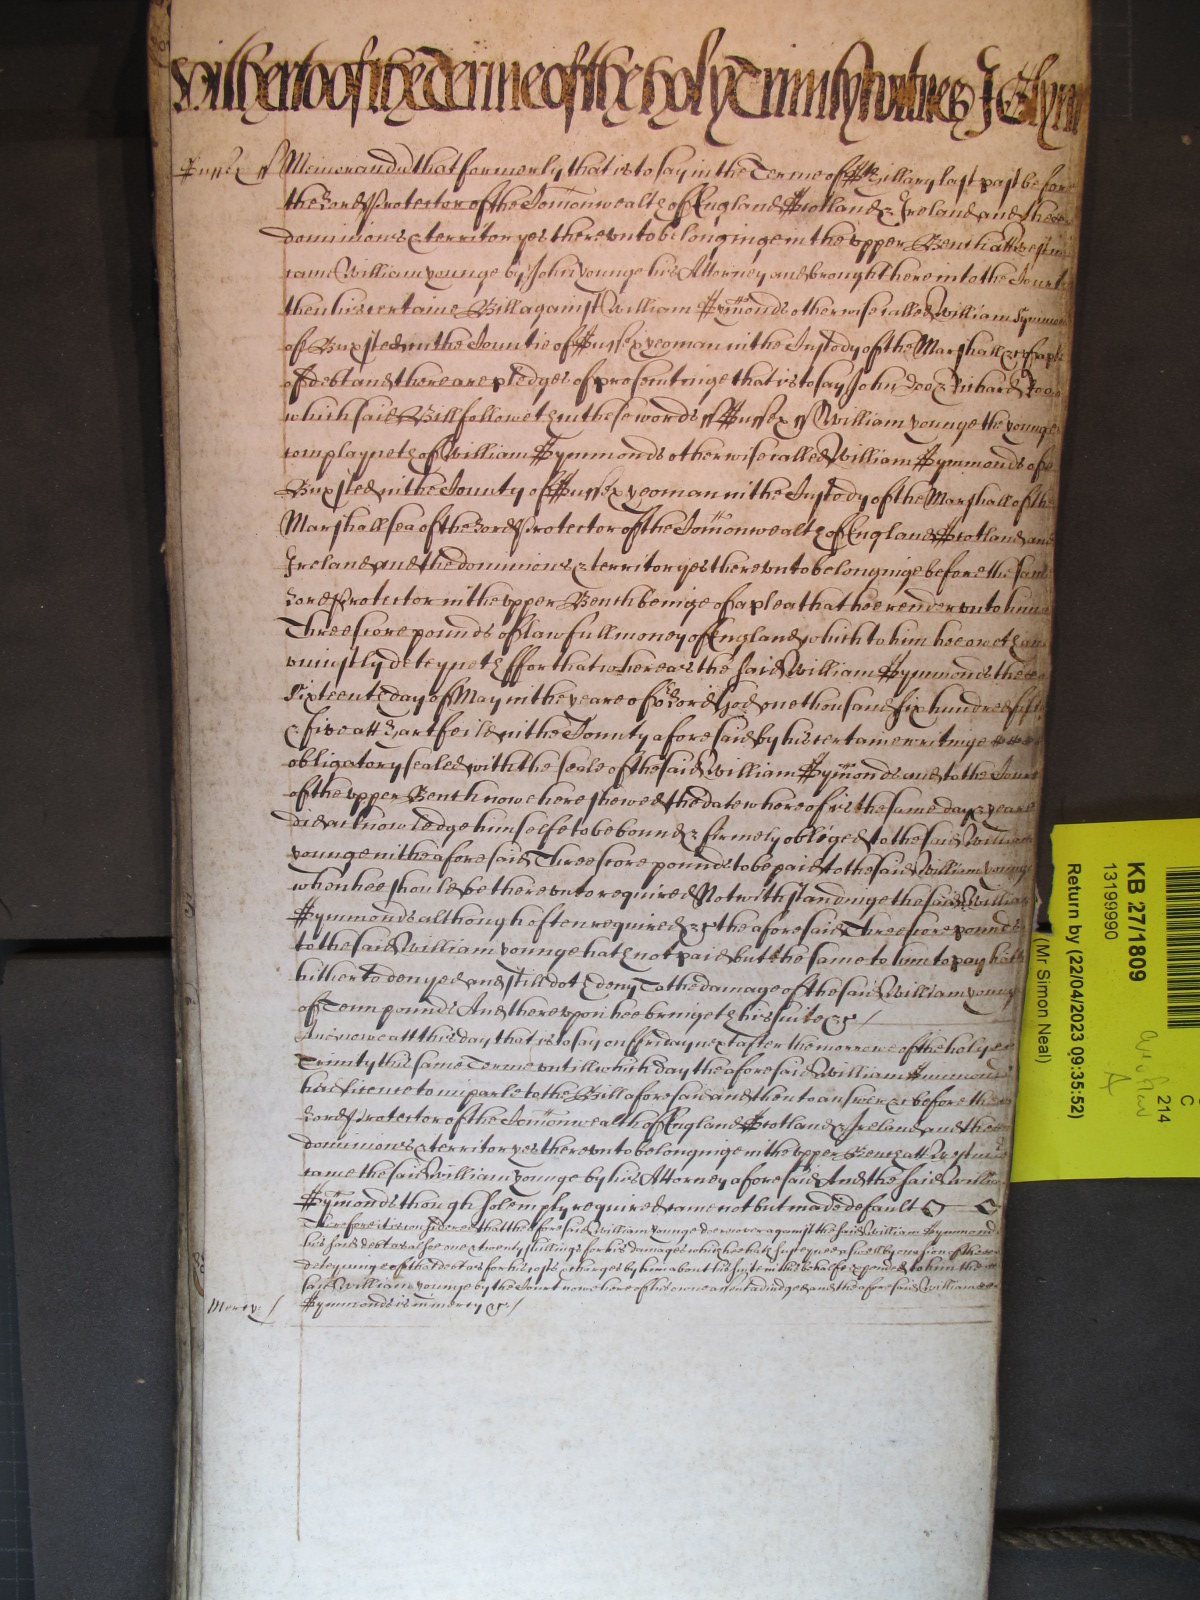 Witherto of the Terme of the holy Trinity Witnes J Glynn
Sussex ss Memorandu that formerly that is to say in the Terme of St Hillary last past before
the Lord Protector of the Comonwealth of England Scotland & Ireland and the
dominions & territoryes thereunto belonginge in the upper Bench att Westmr
came William younge by John younge his Attorney and brought here into the Court
then his certaine Bill against William Symonds otherwise called William Symmonds
of Buxsted in the Countie of Sussex yeoman in the Custody of the Marshall &c of a plea
of debt and there are pledges of prosecutinge that is to say John Doo & Richard Roo
which said Bill followeth in these words ss Sussex ss William younge the younger
complayneth of William Symmonds otherwise called William Symmonds of
Buxsted in the County of Sussex yeoman in the Custody of the Marshall of the
Marshallsea of the Lord Protector of the Comonwealth of England Scotland and
Ireland and the dominions & territoryes thereunto belonginge before the said
Lord Protector in the upper Bench beinge of a plea that hee render unto him
Threescore pounds of lawfull money of England which to him hee oweth and
uniustly deteyneth ffor that whereas the said William Symmonds the
Sixteenth day of May in the yeare of or Lord God one thousand six hundred fiftie
& five att Hartfeild in the County aforesaid by his certaine writinge
obligatory sealed with the seale of the said William Symonds and to the Court
of the upper Bench nowe here shewed the date whereof is the same day & yeare
did acknowledge himselfe to be bound & firmely obliged to the said William
younge in the aforesaid Threescore pounds to be paid to the said William younge
when hee should be thereunto required Notwithstandinge the said William
Symmonds although often required &c the aforesaid Threescore pounds
to the said William younge hath not paid but the same to him to pay hath
hitherto denyed and still doth deny To the damage of the said William younge
of Tenn pounds And thereupon hee bringeth his suite &c /
And nowe att this day that is to say on ffriday next after the morrowe of the holy
Trinity this same Terme untill which day the aforesaid William Symmonds
had licence to imparle to the Bill aforesaid and then to answer &c before the
Lord Protector of the Comonwealth of England Scotland & Ireland and the
dominions & territoryes thereunto belonginge in the upper Bench att Westmr
came the said William younge by his Attorney aforesaid And the said William
Symonds though solemply required came not but made default
Therefore it is considered that the aforesaid William younge doe recover against the said William Symmonds
his said debt as alsoe one & twenty shillings for his damages which hee hath susteyned aswell by occasion of the
deteyninge of that debt as for his costs & charges by him about his suyte in this behalfe expended to him the
said William younge by the Court nowe here of his owne assent adiudged and the aforesaid William
Mercy / Symmonds is in mercy &c /
KB 27/1809
13199990
Return by (22/04/2023 09:35:52)
(Mr Simon Neal)
C
214
A